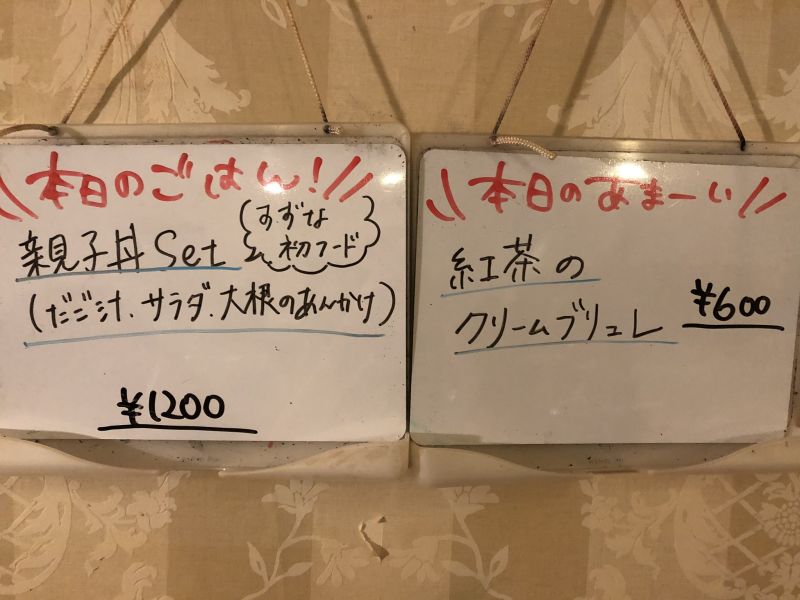 \\本日のごはん!//
親子丼Set
(すずな
初フード
(だご汁、サラダ、大根のあんかけ)
¥1200
\\本日のあまーい//
紅茶の
クリームブリュレ
¥600